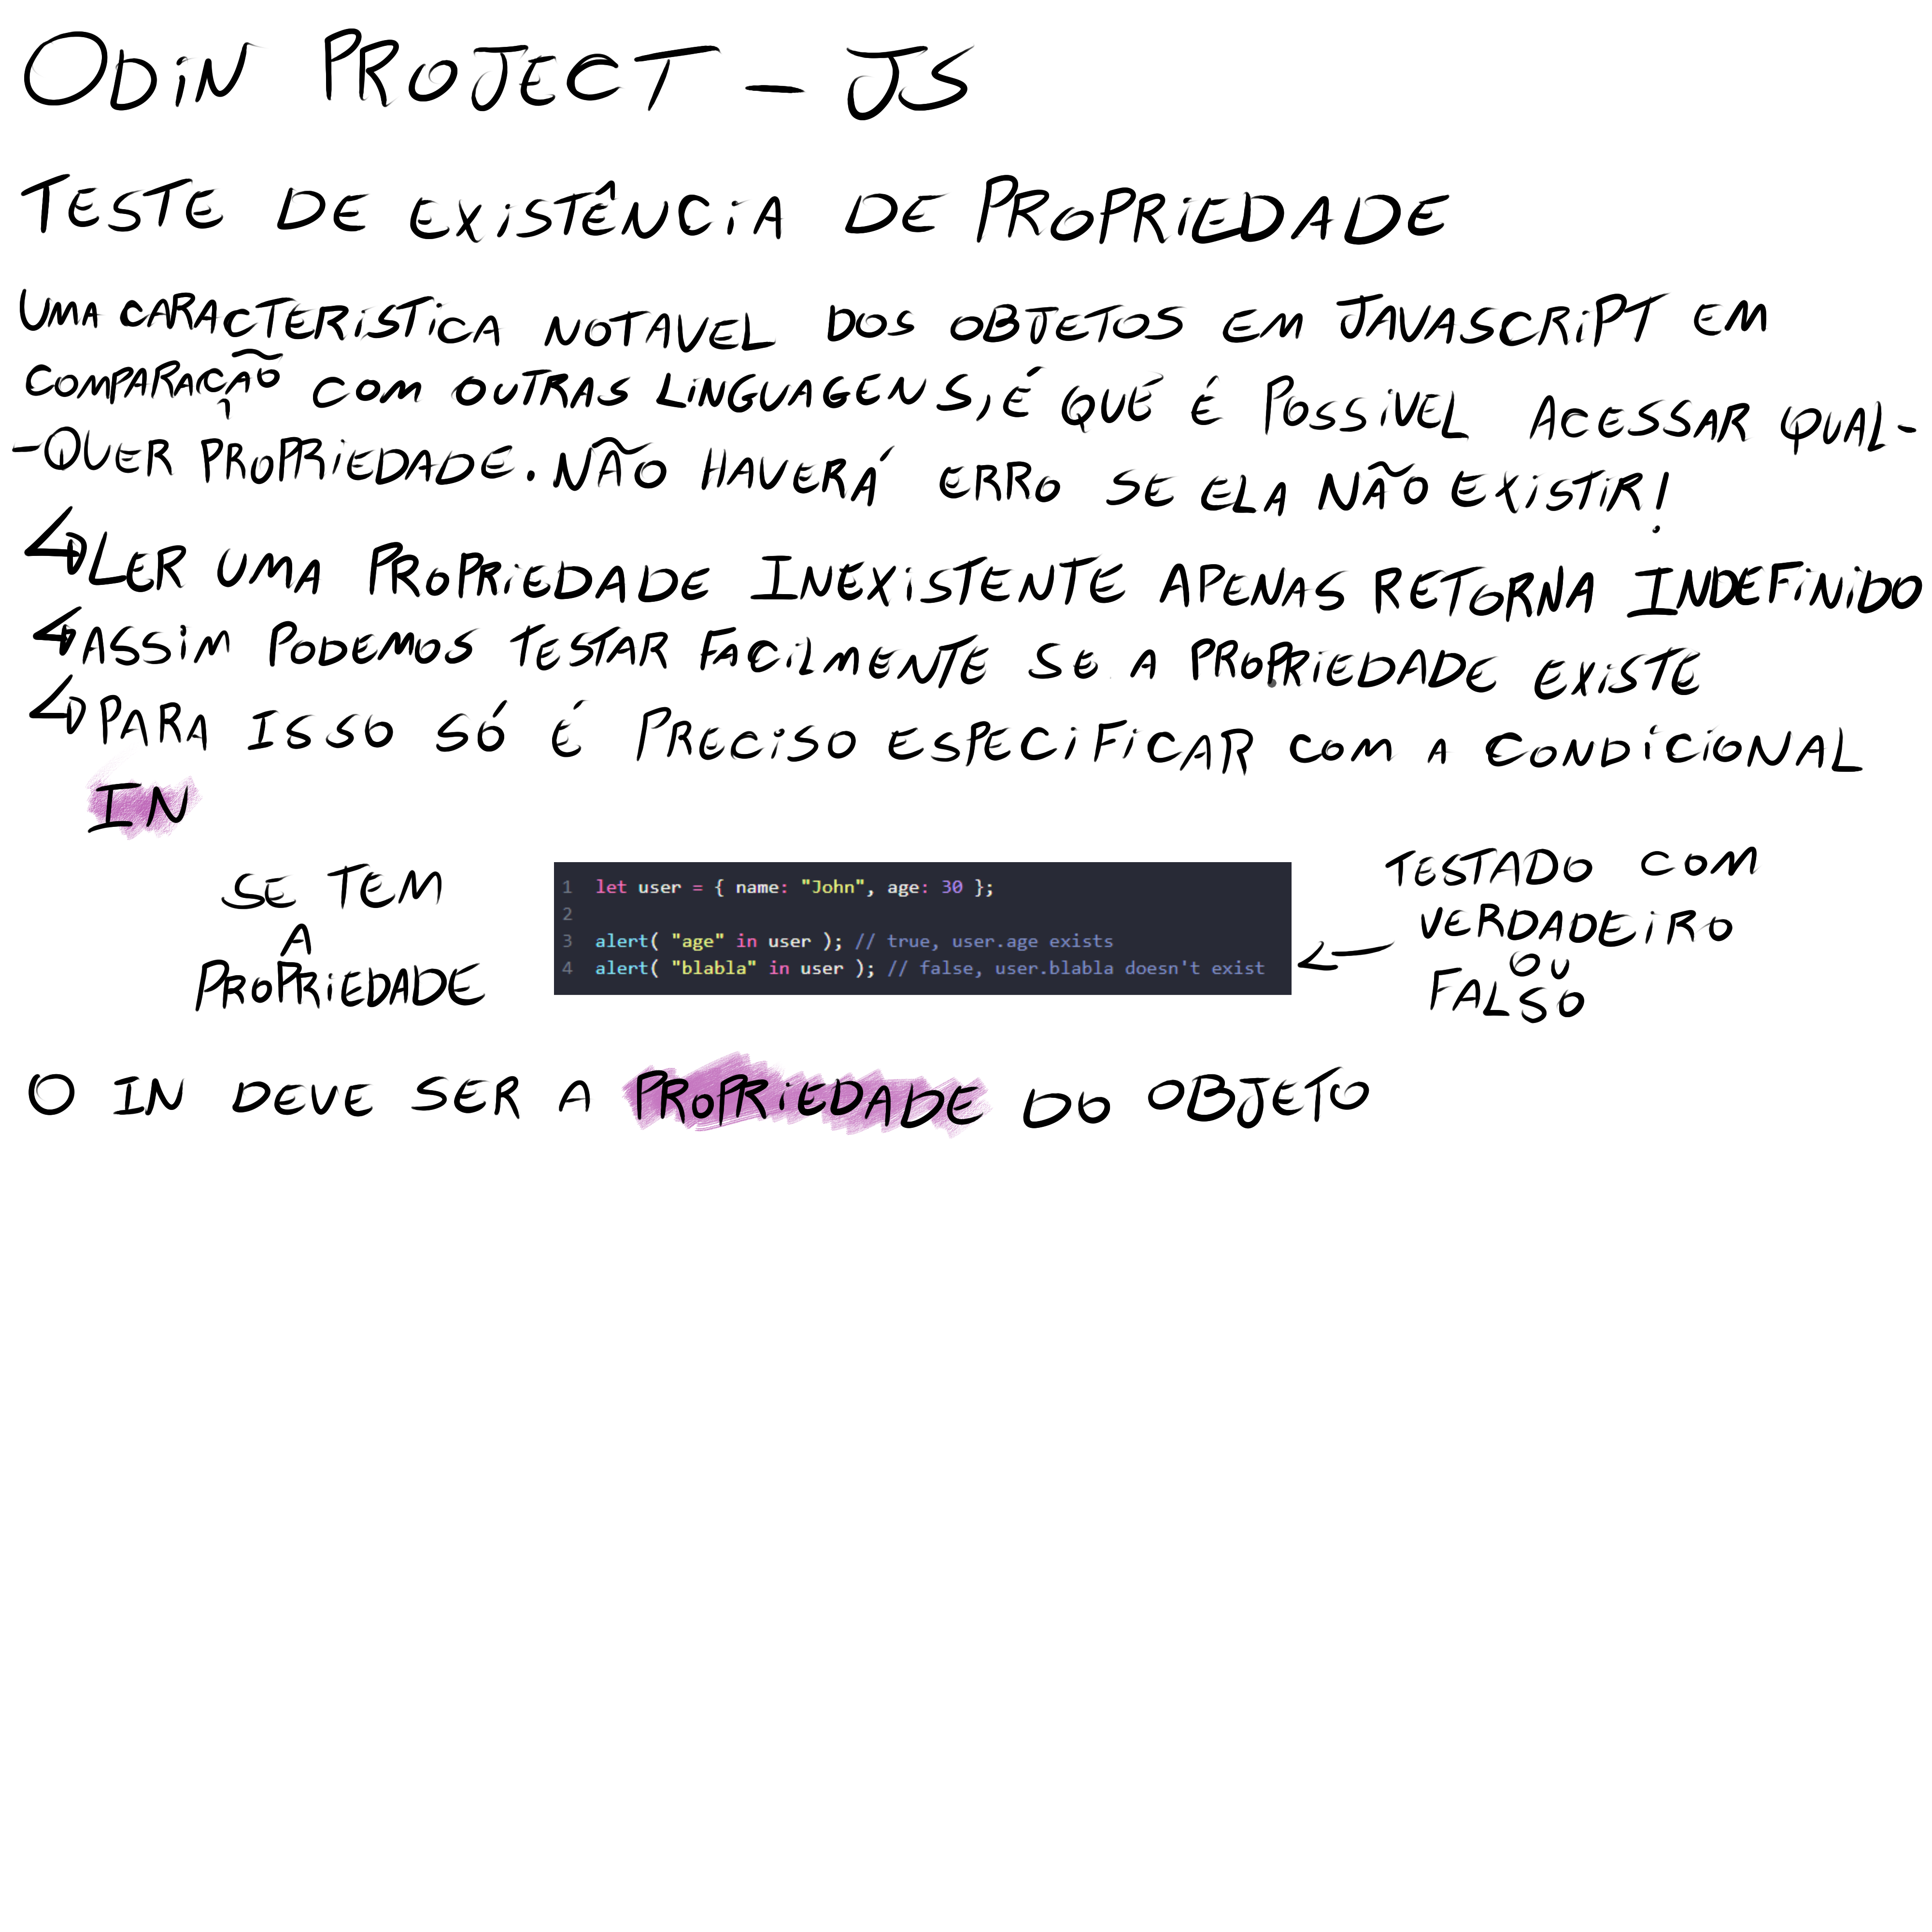 ODIN PROJECT - JS
TESTE DE EXISTÊNCIA DE PROPRIEDADE
UMA CARACTERISTICA NOTAVEL DOS OBJETOS EM JAVASCRIPT EM
COMPARAÇÃO COM OUTRAS LINGUAGENS, É QUE É POSSIVEL ACESSAR QUAL-
-QUER PROPRIEDADE. NÃO HAVERÁ ERRO SE ELA NÃO EXISTIR!
LER UMA PROPRIEDADE INEXISTENTE APENAS RETORNA INDEFINIDO
ASSIM PODEMOS TESTAR FACILMENTE SE A PROPRIEDADE EXISTE
PARA ISSO SÓ É PRECISO ESPECIFICAR COM A CONDICIONAL
IN
SE TEM
A
PROPRIEDADE
1 let user = { name: "John", age: 30 };
2
3 alert( "age" in user ); // true, user.age exists
4 alert( "blabla" in user ); // false, user.blabla doesn't exist
TESTADO COM
VERDADEIRO
OU
FALSO
O IN DEVE SER A PROPRIEDADE DO OBJETO